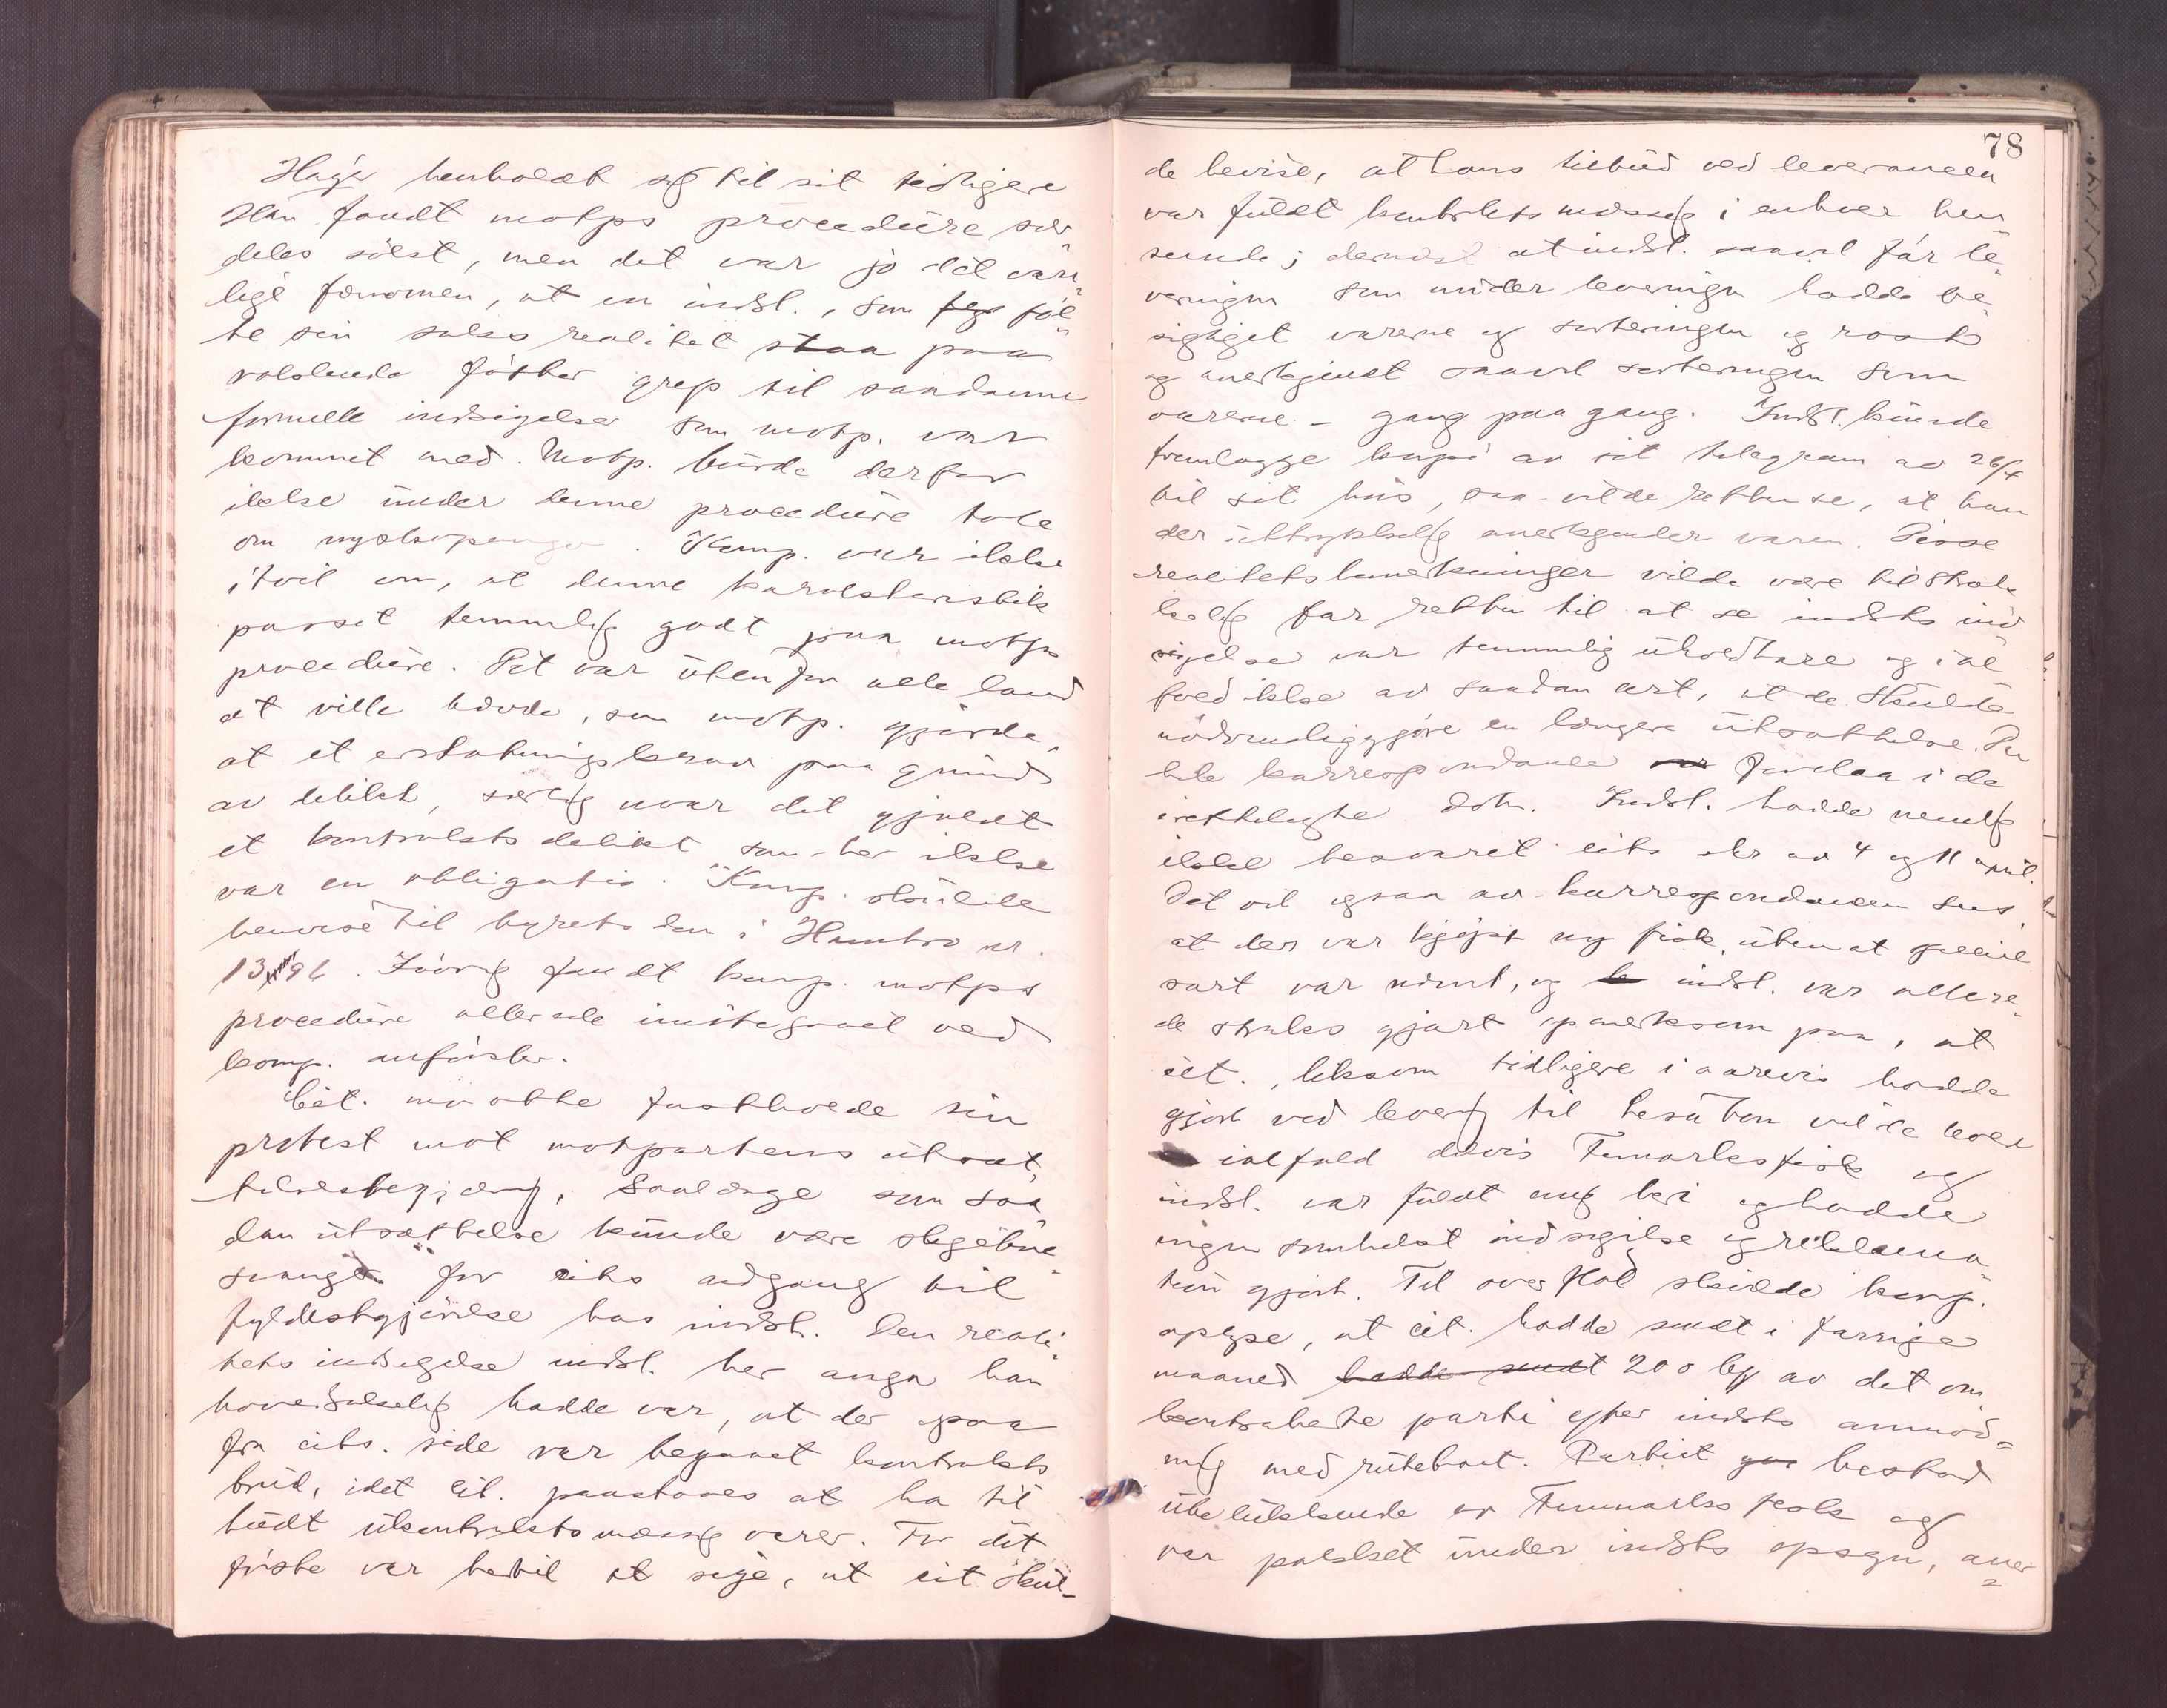 Haye henholdt sig til sit tidligere
Han fandt motps procedure sær¬
deles sölet, men det var jo det van¬
lige fænomen, at en indst., som föl¬
te sin saks realitet staa paa
vaklende fötter grep til saadanne
formelle indsigelser som motp. var
kommet med. Motp. burde derfor
ikke under denne procedure tale
om nyskapninger. Komp. var ikke
i tvil om, at denne karakteristik
passet temmelig godt paa motps
procedure. Det var utenfor alle land
at ville hævde, som motp. gjorde,
at et erstatningskrav paa grund
av delikt, særlig naar det gjaldt
et kontraktsdelikt som her ikke
var en obligatio. Komp. skulde
henvise til byretsdom i Hambro nr.
13 96. Iövrig fandt komp. motps
procedure allerede imötegaaet ved
komp. anförsler.
Cit. maatte fastholde sin
protest mot motpartens utsæt¬
telsesbegjæring, saalænge som saa¬
dan utsættelse kunde være skjebne¬
svanger for cits adgang til
fyldestgjörelse hos indst. Den reali¬
tets indsigelse indst. her anga han
hovedsakelig hadde var, at der ogsaa
fra cits. side var begaaet kontrakts
brud, idet cit. paastaaes at ha til¬
budt ukontraktsmæssig varer. For det
förste var hertil at sige, at cit skul¬
78
de bevise, at hans tilbud ved leverancen
var fuldt kontraktsmæssig i enhver hen¬
seende; dernæst at indst. saavel för le¬
veringen som under leveringen hadde be¬
sigtiget varerne og sorteringen og rost
og anerkjendt saavel sorteringen som
varerne - gang paa gang. Indst. kunde
fremlægge kopi av sit telegram av 26/4
til sit hus, saa vilde retten se, at han
der uttrykkelig anerkjender varen. Disse
realitetsbemerkninger vilde være tilstræk
kelig for retten til at se indsts ind
sigelse var temmelig uholdbare og ial
fald ikke av saadan art, at de skulde
nödvendiggjöre en længere utsættelse. Den
hele korrespondance forelaa i de
irettelagte dok. Indst. hadde nemlig
ikke besvaret cits skr av 4 og 11 april.
Det vil ogsaa av korrespondancen sees,
at der var kjöpt ny fisk, uten at speciel
sort var nævnt, og indst. var allere¬
de straks gjort opmerksom paa, at
cit., liksom tidligere i aarevis hadde
gjort ved levering til vilde levere
ialfald delvis Finmarksfisk og
indst. var fuldt enig heri og hadde
ingen somhelst indsigelse og reklama¬
tion gjort. Til overflod skulde komp.
oplyse, at cit. hadde sendt i forrige
maaned hadde sendt 200 av det om
kontraherte parti efter indsts anmod¬
ning med rutebaat. Partiet bestod
utelukkende av Finmarks fisk og
var pakket under indsts opsyn, aner¬